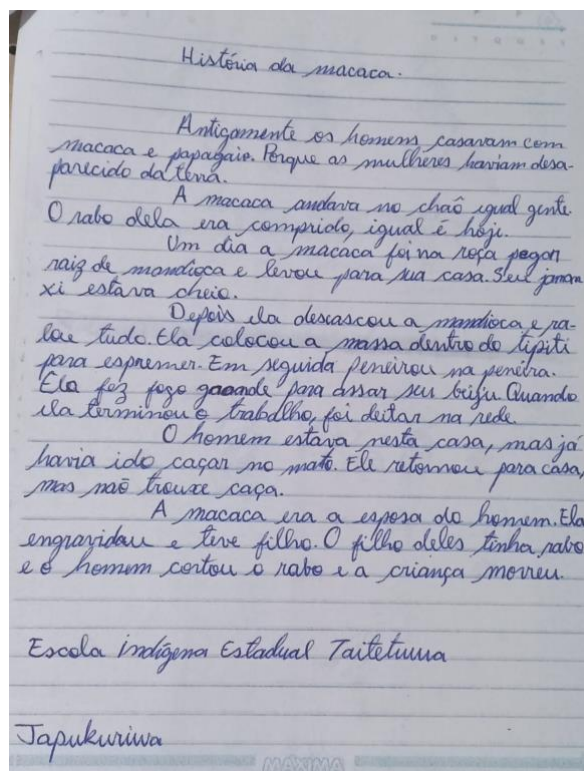 História da macaca.
Antigamente os homens casavam com
macaca e papagaio. Porque as mulheres haviam desa-
parecido da terra.
A macaca andava no chaõ igual gente.
O rabo dela era comprido, igual é hoje.
Um dia a macaca foi na roça pegar
raiz de mandioca e levou para sua casa. Seu jamam
xi estava cheio.
Depois ela descascou a mandioca e ra-
lou tudo. Ela colocou a massa dentro do tipiti
para espremer. Em seguida peneirou na peneira.
Ela fez fogo grande para assar seu beiju. Quando
ela terminou o trabalho, foi deitar na rede.
O homem estava nesta casa, mas já
havia ido caçar no mato. Ele retornou para casa,
mas naõ trouxe caça.
A macaca era a esposa do homem. Ela
engravidou e teve filho. O filho deles tinha rabo
e o homem cortou o rabo e a criança morreu.
Escola indígena Estadual
Japukuriwa
MÁXIMA